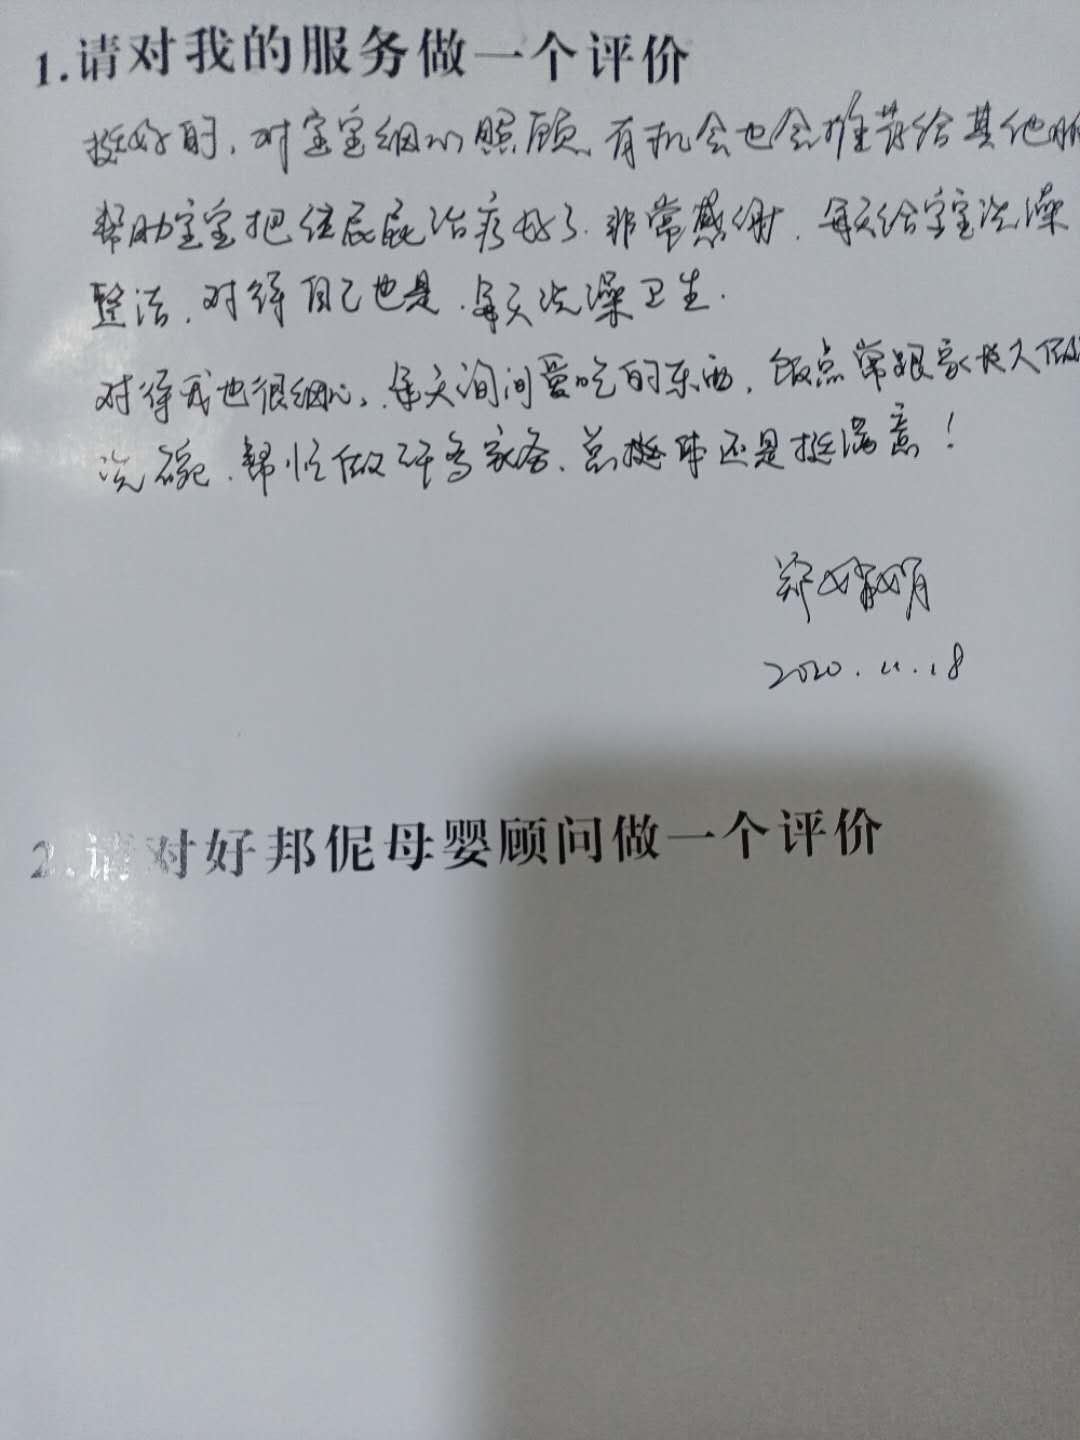 1.请对我的服务做一个评价
挺好的,对宝宝细心照顾,有机会也会推荐给其他
帮助宝宝把红屁屁治疗好了.非常感谢.每天给宝宝洗澡
整洁,对待自己也是.每天洗澡卫生.
对待我也很细心,每天询问爱吃的东西,饭点常跟家长人做
洗碗.帮忙做许多家务.总体来还是挺满意!
郑
2020.11.18
2.请对好邦伲母婴顾问做一个评价